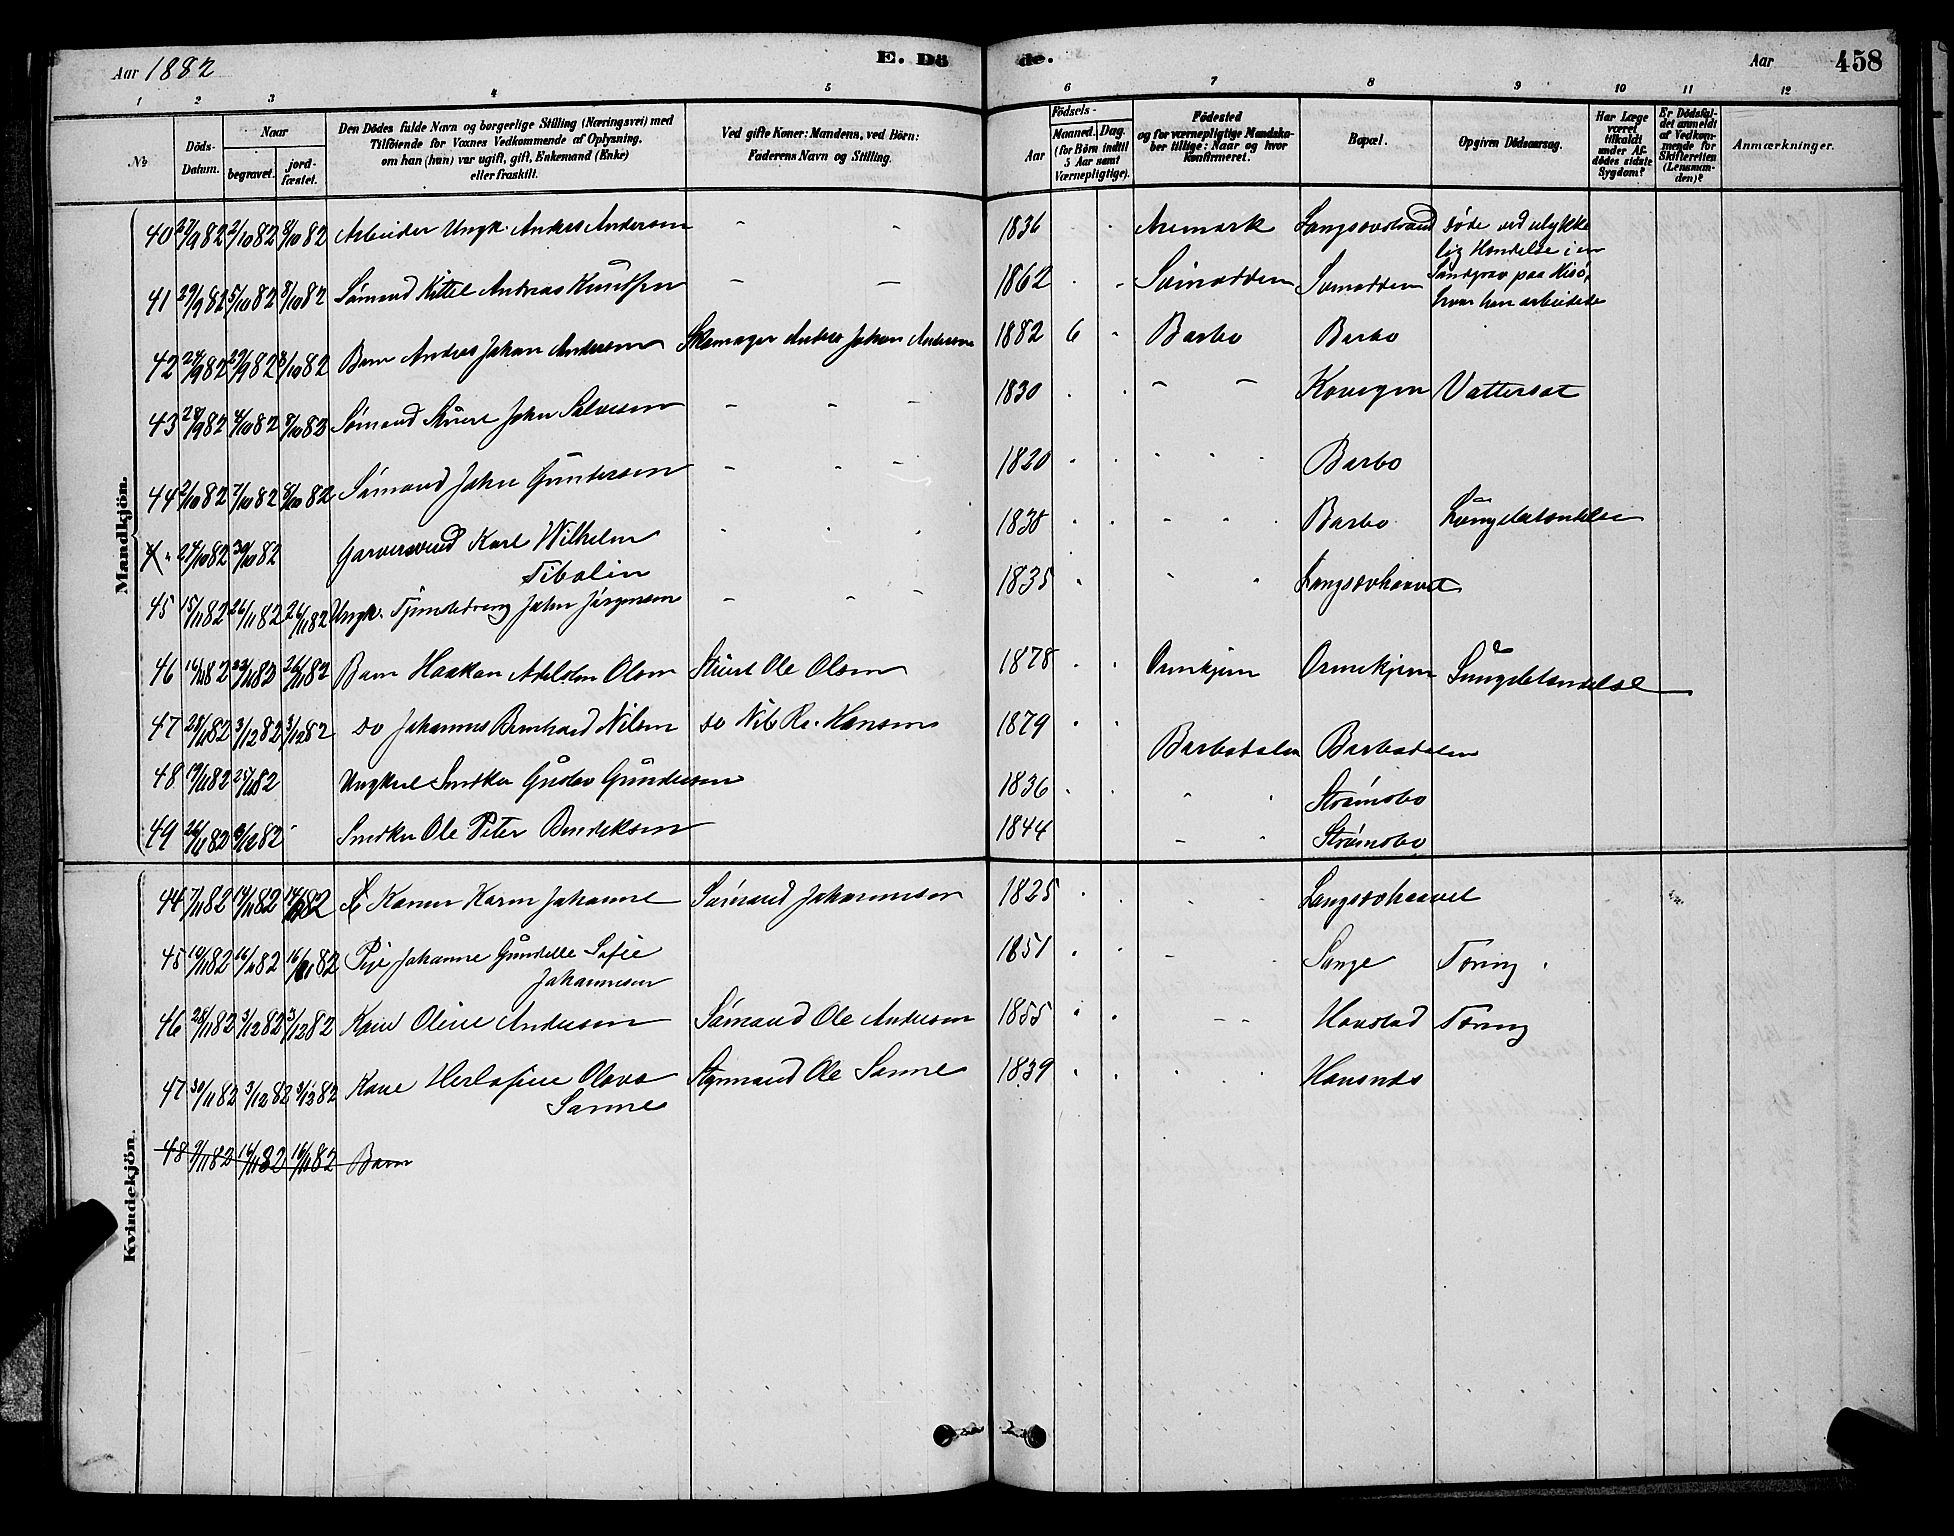 Aar 1882
E. Dö
de.
Aar
458
1 2 3 4 5 6 7 8 9 10 11 12
№
Döds-Datum.
Naar
begravet.
jord-fæstet.
Den Dödes fulde Navn og borgerlige Stilling (Næringsvei) med
Tilföiende for Voxnes Vedkommende af Oplysning,
om han (hun) var ugift, gift, Enkemand (Enke)
eller fraskilt.
Ved gifte Koner: Mandens, ved Börn:
Faderens Navn og Stilling.
Födsels-
Aar
Maaned. Dag.
(for Börn indtil
5 Aar samt
Værnepligtige).
Födested
og for værnepligtige Mandska-
ber tillige: Naar og hvor
konfirmeret.
Bopæl.
Opgiven Dödsaarsag.
Har Læge
været
tilkaldt
under Af-
dödes sidste
Sygdom?
Er Dödsfal-
det anmeldt
af Vedkom-
mende for
Skifteretten
(Lensman-
den)?
Anmærkninger.
Mandkjön.
40 27/9 82 2/10 82 8/10 82 Arbeider Ungk. Anders Andersen - 1836 Aremark Langsævstrand döde ved ulykke
lig Hændelse i en
Sandgrav paa Hisö,
hvor han arbeidede
41 29/9 82 5/10 82 8/10 82 Sømand Kittel Andreas Knudsen - - 1862
42 24/9 82 29/9 82 8/10 82 Barn Andreas Johan Andersen Skomager Andreas Johan Andersen 1882 6 Barbo Barbo
43 28/9 82 4/10 82 8/10 82 Sømand Stuert John Salvesen - - - 1830 - - Kovigen Vattersot
44 2/10 82 7/10 82 8/10 82 Sømand John Gundersen - - - 1820 Barbo
24/10 82 30/10 82 Garversvend Karl Wilhelm
Tibolin 1838 Barbo Lungebetændelse
45 15/11 82 26/11 82 26/11 82 Ungk. Tjenestedreng John Jørgensen - - - 1835 Langsævhaavet
46 16/11 82 23/11 82 26/11 82 Barn Haakon Adelsten Olsen Stuert Ole Olsen 1878 Ormekjern Lungebetændelse
47 28/11 82 3/12 82 3/12 82 do Johannes Bernhard Nilsen do Nils Hansen 1879 Barbodalen Barbodalen
48 19/11 82 25/11 82 Ungkarl Snedker Gustav Gundersen 1836 Strømsbo
49 82 82 - Snedker Ole Peter Bendiksen 1844 - Strømsbo
Kvindekjön.
44 7/11 82 14/11 82 82 Konen Karen Johanne Sømand Johannesen 1825 Langsævhaavet
45 10/11 82 16/11 82 16/11 82 Pige Johanne Gundelle Sofie
Johannesen 1851 - Songe Tæring
46 28/11 82 3/12 82 3/12 82 Kone Oline Andersen Sømand Ole Andersen 1855 - - Havstad Tæring
47 30/11 82 3/12 82 3/12 82 Kone Olava
Sanne Styrmand Ole Sanne 1839
48 9/11 82 16/11 82 16/11 82 Barn